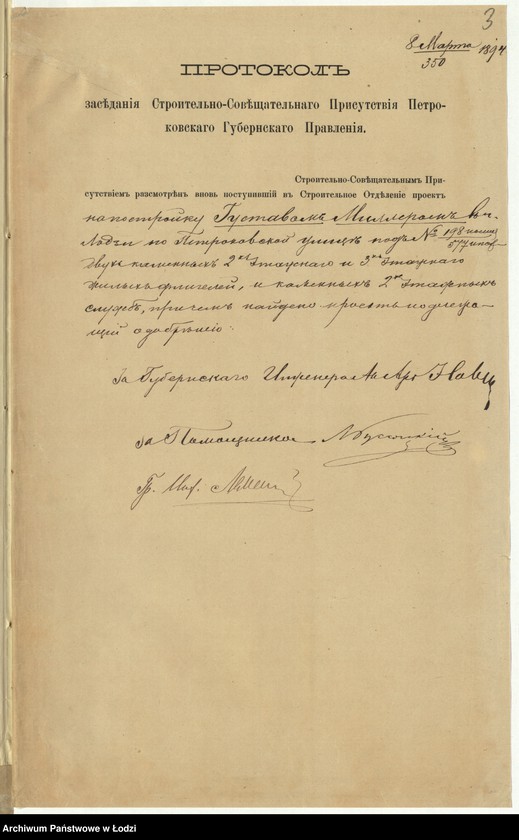 3
8 Марта 1894
350
ПРОТОКОЛЪ
засѣданія Строительно-Совѣщательнаго Присутствія Петро-
ковскаго Губернскаго Правленія.
Строительно-Совѣщательнымъ При-
сутствіемъ разсмотрѣнъ вновь поступившій въ Строительное Отдѣленіе проектъ
на постройку Густавомъ Миллеромъ въ г.
Лодзи по Петроковской улицѣ подъ № 198 полиц.
577 ипот.
двухъ каменныхъ 2хъ этажнаго и 3хъ этажнаго
жилыхъ флигелей, и каменныхъ 2хъ этажныхъ
службъ, причемъ найдено проектъ подлежа-
щій одобренію.
За Губернскаго Инженера
За Помощника
Гр. Инж.
Archiwum Państwowe w Łodzi